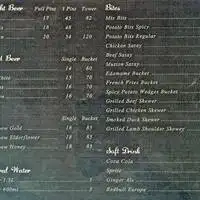 ht Beer Full Pint ½ Pint Tower
17 45 82
17 40
17 54
Beer Single Bucket
14 60
hite 15 70
15 70
16 70
Single Bucket
ow Gold 18 85
ow Elderflower 18 85
ow Honey 18 85
ral Water
1.5L
400ml
Bites
Mix Bite
Potato Bites Spicy
Potato Bites Regular
Chicken Satay
Beef Satay
Mutton Satay
Edamame Bucket
French Fries Bucket
Spicy Potato Wedges Bucket
Grilled Beef Skewer
Grilled Chicken Skewer
Smoked Duck Skewer
Grilled Lamb Shoulder Skewer
Soft Drink
Coca Cola
Sprite
Ginger Ale
Redbull Europe